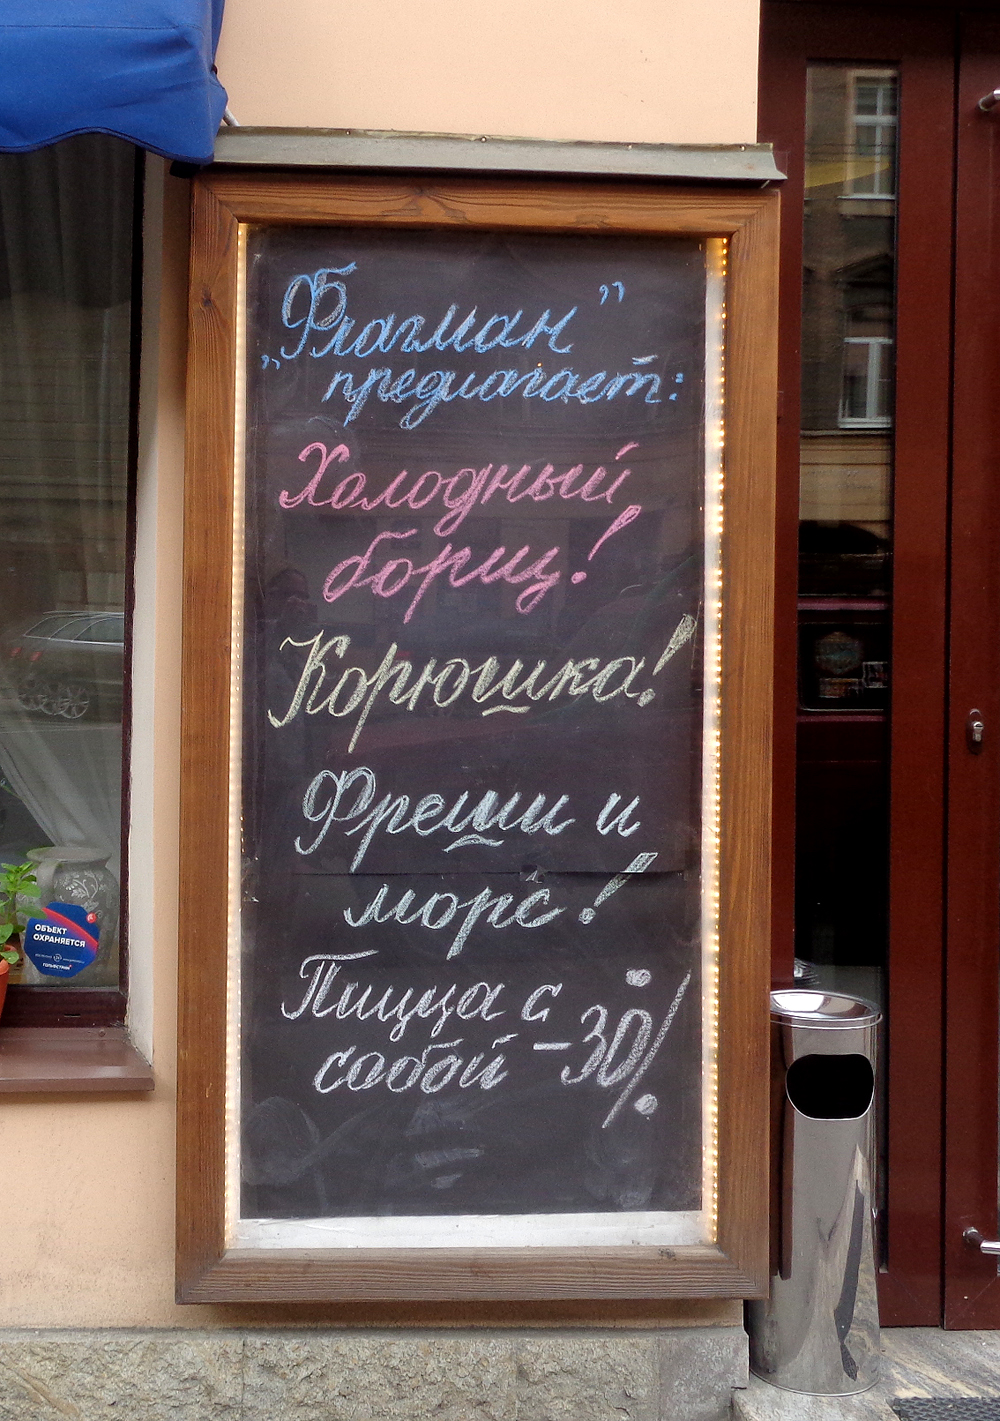 „Флагман”
предлагает:
Холодный
борщ!
Корюшка!
Фреши и
морс!
Пицца с
собой -30%
ОБЪЕКТ
ОХРАНЯЕТСЯ